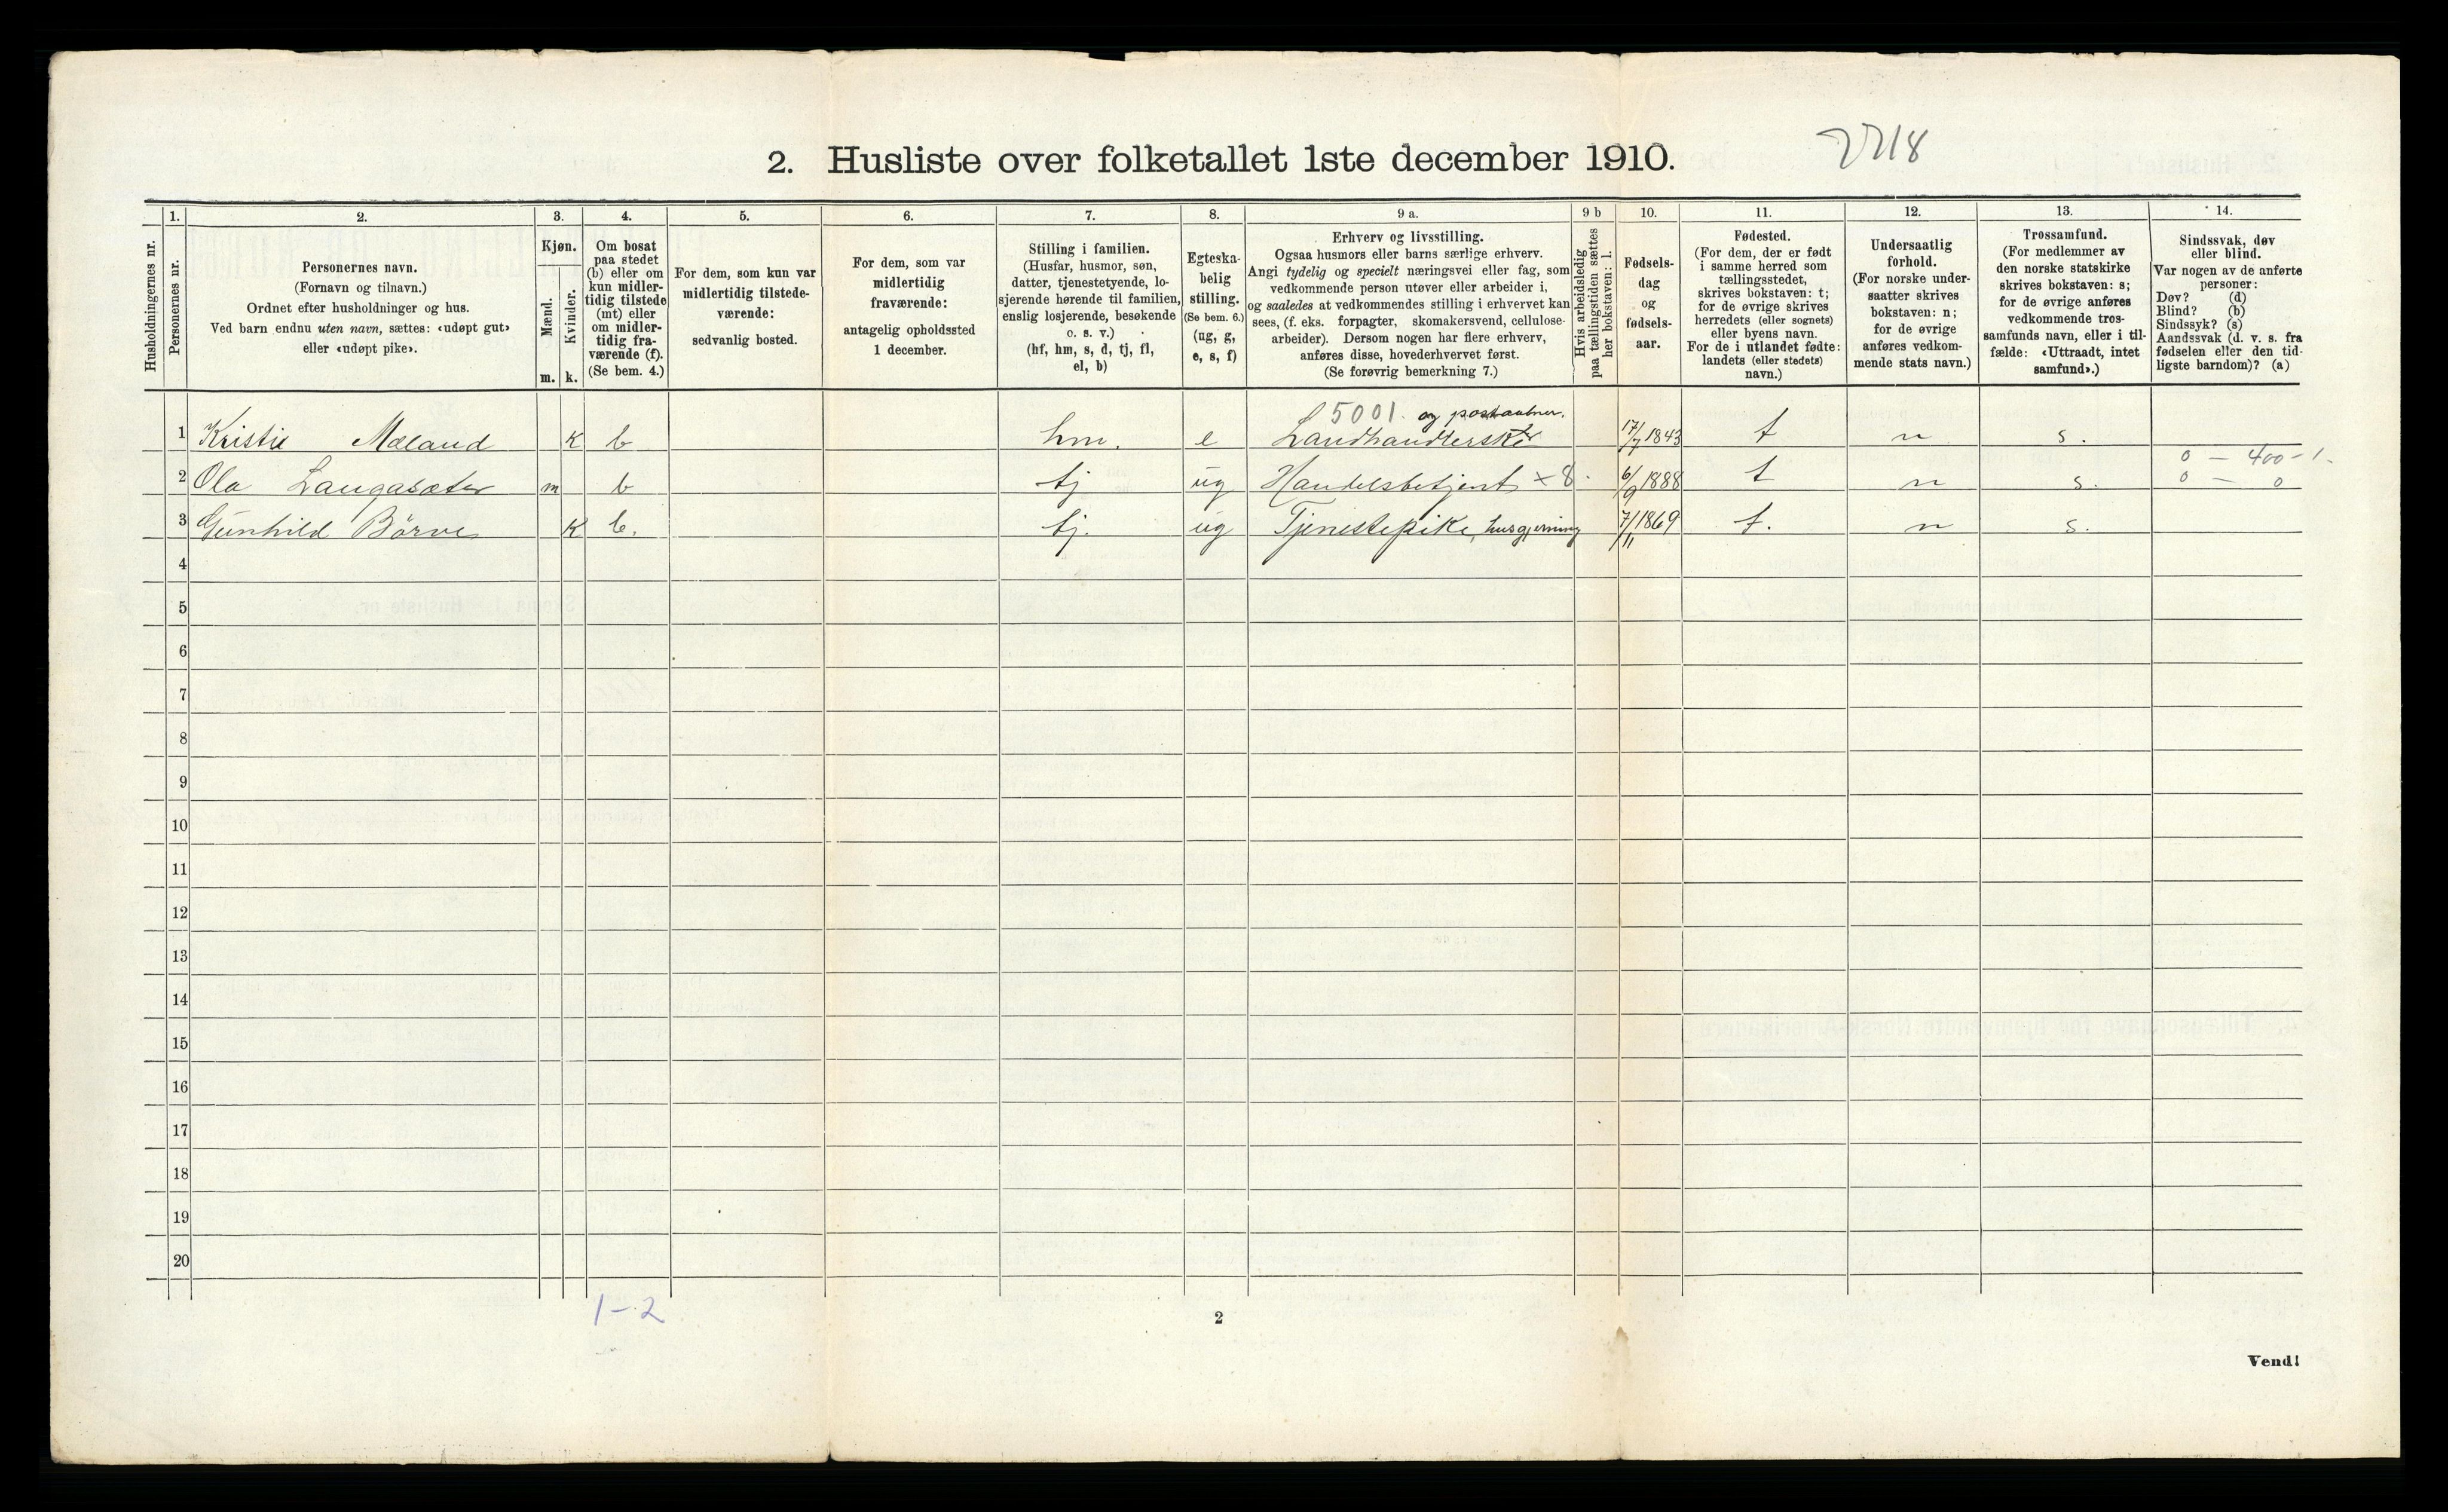 2. Husliste over folketallet 1ste december 1910.
2218
1. 2. 3. 4. 5. 6. 7. 8. 9 a. 9 b 10. 11. 12. 13. 14.
Husholdningernes nr.
Personernes nr.
Personernes navn.
(Fornavn og tilnavn.)
Ordnet efter husholdninger og hus.
Ved barn endnu uten navn, sættes: «udøpt gut»
eller «udøpt pike».
Kjøn.
Mænd.
Kvinder.
m. k.
Om bosat
paa stedet
(b) eller om
kun midler-
tidig tilstede
(mt) eller
om midler-
tidig fra-
værende (f).
(Se bem. 4.)
For dem, som kun var
midlertidig tilstede-
værende:
sedvanlig bosted.
For dem, som var
midlertidig
fraværende:
antagelig opholdssted
1 december.
Stilling i familien.
(Husfar, husmor, søn,
datter, tjenestetyende, lo-
sjerende hørende til familien,
enslig losjerende, besøkende
o. s. v.)
(hf, hm, s, d, tj, fl,
el, b)
Egteska-
belig
stilling.
(Se bem. 6.)
(ug, g,
e, s, f)
Erhverv og livsstilling.
Ogsaa husmors eller barns særlige erhverv.
Angi tydelig og specielt næringsvei eller fag, som
vedkommende person utøver eller arbeider i,
og saaledes at vedkommendes stilling i erhvervet kan
sees, (f. eks. forpagter, skomakersvend, cellulose-
arbeider). Dersom nogen har flere erhverv,
anføres disse, hovederhvervet først.
(Se forøvrig bemerkning 7.)
Hvis arbeidsledig
paa tællingstiden sættes
her bokstaven: l.
Fødsels-
dag
og
fødsels-
aar.
Fødested.
(For dem, der er født
i samme herred som
tællingsstedet,
skrives bokstaven: t;
for de øvrige skrives
herredets (eller sognets)
eller byens navn.
For de i utlandet fødte:
landets (eller stedets)
navn.)
Undersaatlig
forhold.
(For norske under-
saatter skrives
bokstaven: n;
for de øvrige
anføres vedkom-
mende stats navn.)
Trossamfund.
(For medlemmer av
den norske statskirke
skrives bokstaven: s;
for de øvrige anføres
vedkommende tros-
samfunds navn, eller i til-
fælde: «Uttraadt, intet
samfund».)
Sindssvak, døv
eller blind.
Var nogen av de anførte
personer:
Døv? (d)
Blind? (b)
Sindssyk? (s)
Aandssvak (d. v. s. fra
fødselen eller den tid-
ligste barndom)? (a)
5001. og postaabner.
1 Kristie Mæland k b hm. e Landhandlerske 17/7 1843 t n s.
0 — 400 - 1.
2 Ola Langasæter m b tj ug Handelsbetjent x 8. 6/9 1888 t n s. 0 — 0
3 Gunhild Börve k b. tj. ug Tjenestepike, husgjerning 7/11 1869 t. n s.
4
5
6
7
8
9
10
11
12
13
14
15
16
17
18
19
20
1-2
2
Vend!